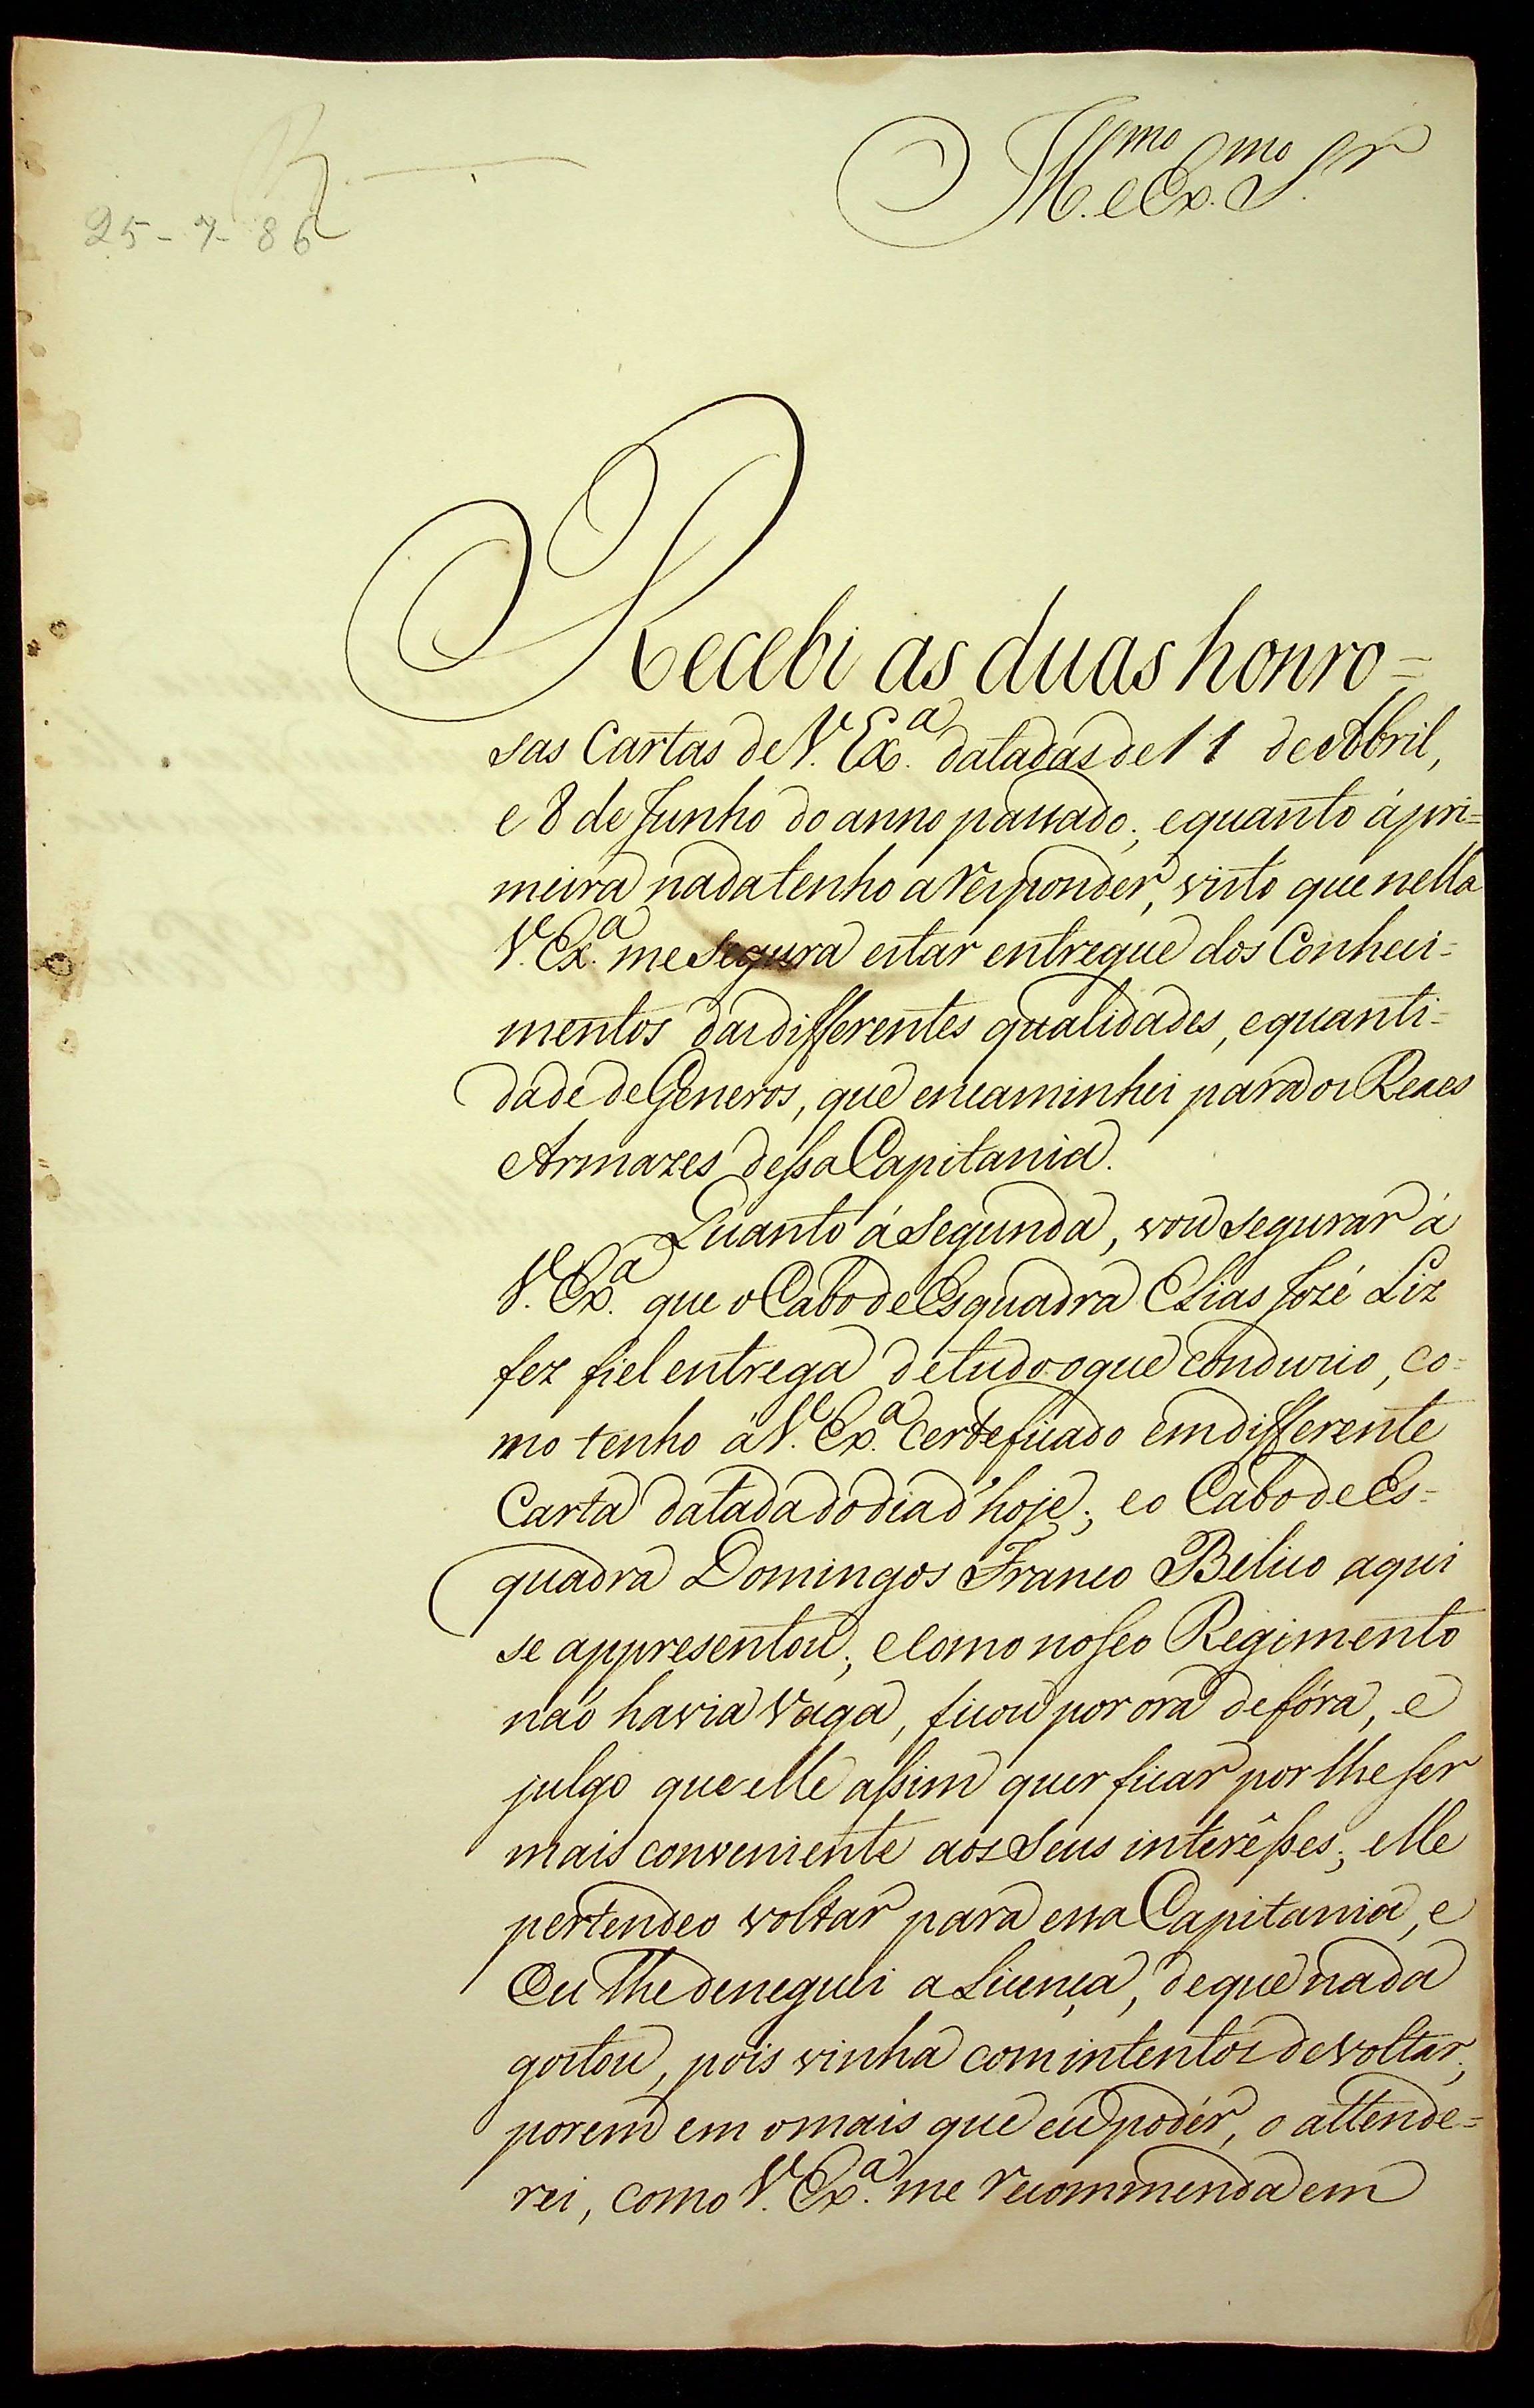 Ill.mo e Ex.mo S.r
25-7-86
Recebi as duas honro=
sas Cartas de V. Ex.a datadas de 11 de Abril,
e 8 de Junho do anno passado; e quanto á pri=
meira nada tenho a responder, visto que nella
V. Ex.a me segura estar entregue dos Conheci=
mentos das differentes qualidades, e quanti=
dade de Generos, que encaminhei para os Reaes
Armazes dessa Capitania.
Quanto á segunda, vou segurar á
V. Ex.a que o Cabo de Esquadra Elias Jozé Liz
fez fiel entrega de tudo o que conduzio, co=
mo tenho á V. Ex.a certeficado em differente
Carta datada do dia d'hoje; e o Cabo de Es=
quadra Domingos Franco Belico aqui
se appresentou; e como no seo Regimento
naõ havia vaga, ficou por ora de fóra, e
julgo que elle assim quer ficar por lhe ser
mais conveniente aos seus interêsses; elle
pertendeo voltar para essa Capitania, e
Eu lhe deneguei a Licença, de que nada
gostou, pois vinha com intentos de voltar;
porem em o mais que eu podér, o attende=
rei, como V. Ex.a me recommenda em